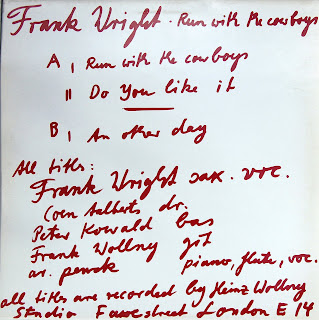 Frank Wright · Run with the cowboys
A I Run with the cowboys
II Do You like it
B I An other day
All titles:
Frank Wright sax. voc.
Coen Aalberts dr.
Peter Kowald bas
Frank Wollny git
ar. penck piano, flute, voc.
all titles are recorded by Heinz Wollny
Studio Fawestreet London E 14